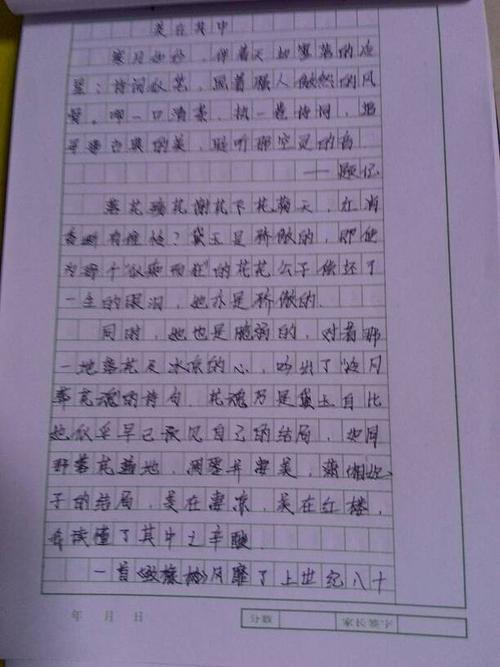 美在其中
寒月如妙，伴着天边寥落的冷
星；诗词似花，照着骚人傲然的风
爱。啜一口清茶，执一卷诗词，追
寻着古典的美，聆听那空灵的音
——题记
落花飞花谢花下花满天，红消
香断有谁怜？黛玉是骄傲的，即使
为那个似痴而狂的花花公子偿还了
一生的眼泪，她亦是骄傲的.
同时，她也是脆弱的，对着那
一地落花及冰凉的心，吟出了“冷月
葬花魂”的诗句.花魂乃是黛玉自比
她似乎早已预见自己的结局，如同
野落花满地，凋零并凄美，潇湘妃
子的结局，美在凄凉，美在红楼，
我读懂了其中之辛酸.
一首《致橡树》风靡了上世纪八十
年 月 日
分数
家长签字